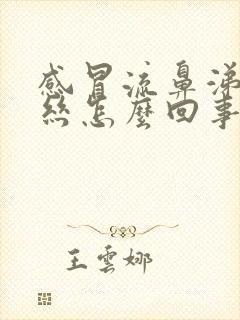 感冒流鼻涕
丝怎麼回事
王雲娜